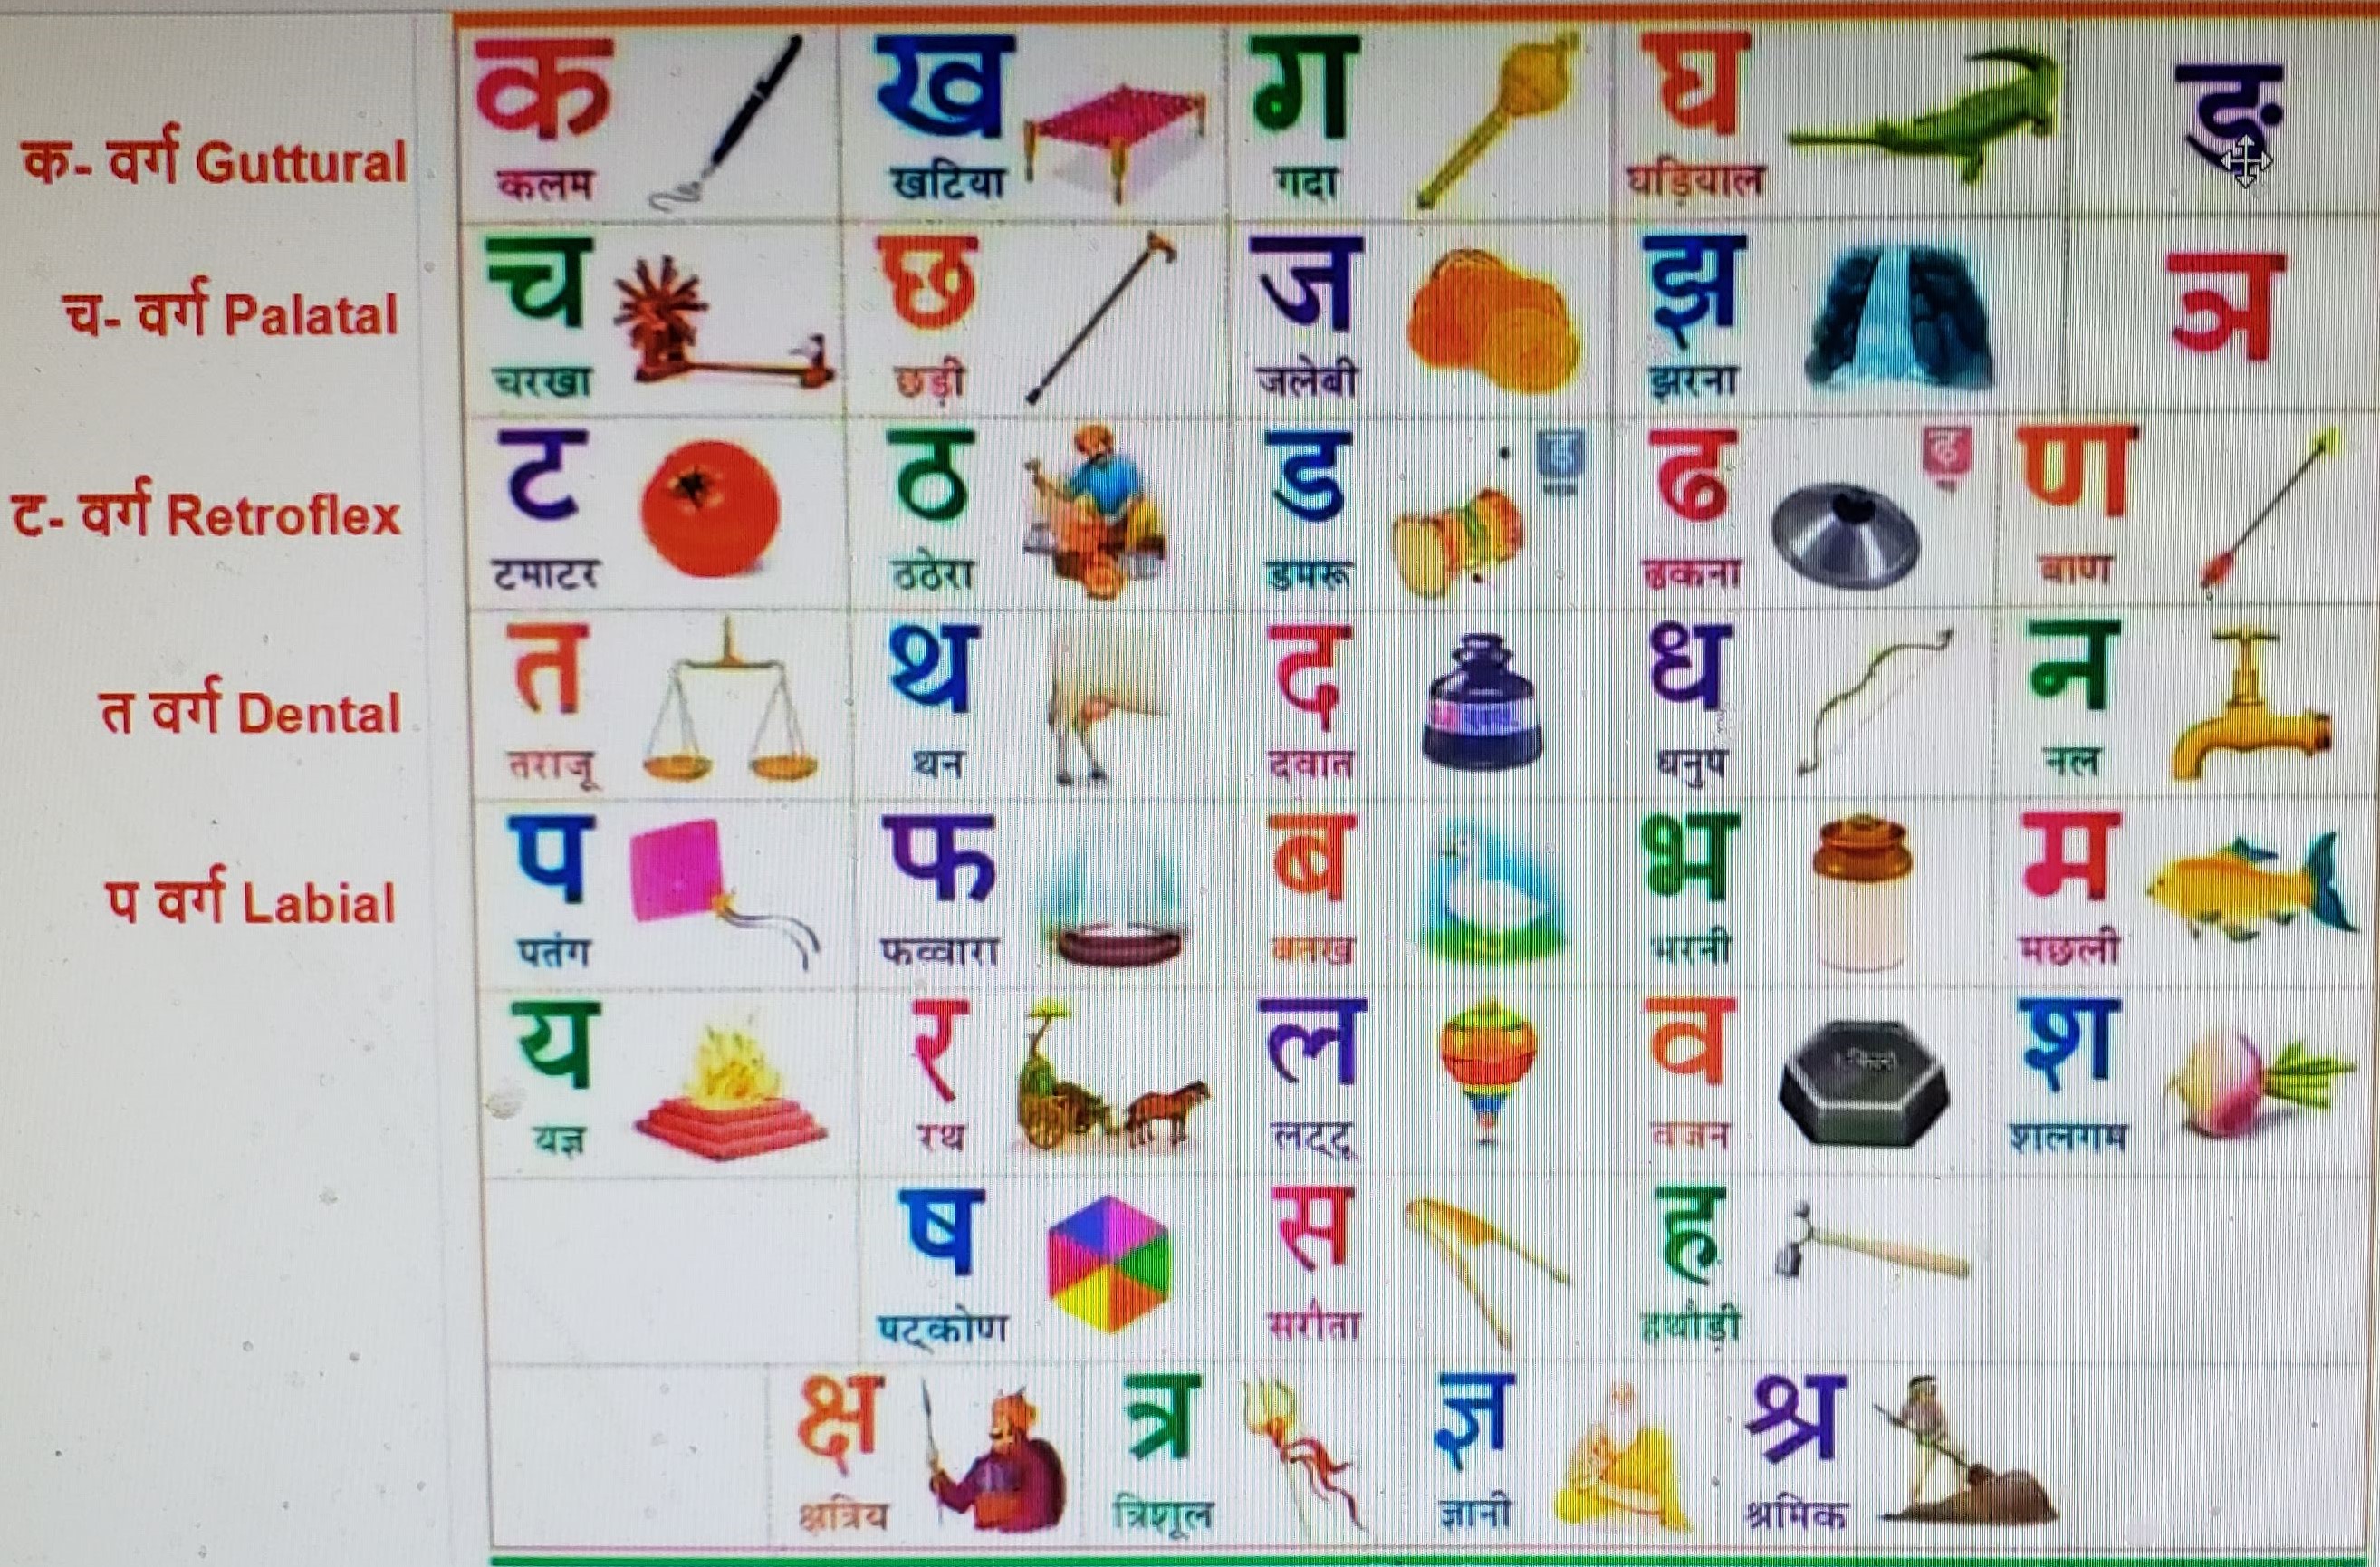 क ख ग घ ङ
क- वर्ग Guttural
कलम खटिया गदा घड़ियाल
च छ ज झ ञ
च- वर्ग Palatal
चरखा छड़ी जलेबी झरना
ट ठ ड ड़ ढ ढ़ ण
ट- वर्ग Retroflex
टमाटर ठठेरा डमरू ढकना बाण
त थ द ध न
त वर्ग Dental
तराजू थन दवात धनुष नल
प फ ब भ म
प वर्ग Labial
पतंग फव्वारा बतख भरनी मछली
य र ल व श
यज्ञ रथ लट्टू वजन शलगम
ष स ह
षट्कोण सरौता हथौड़ी
क्ष त्र ज्ञ श्र
क्षत्रिय त्रिशूल ज्ञानी श्रमिक